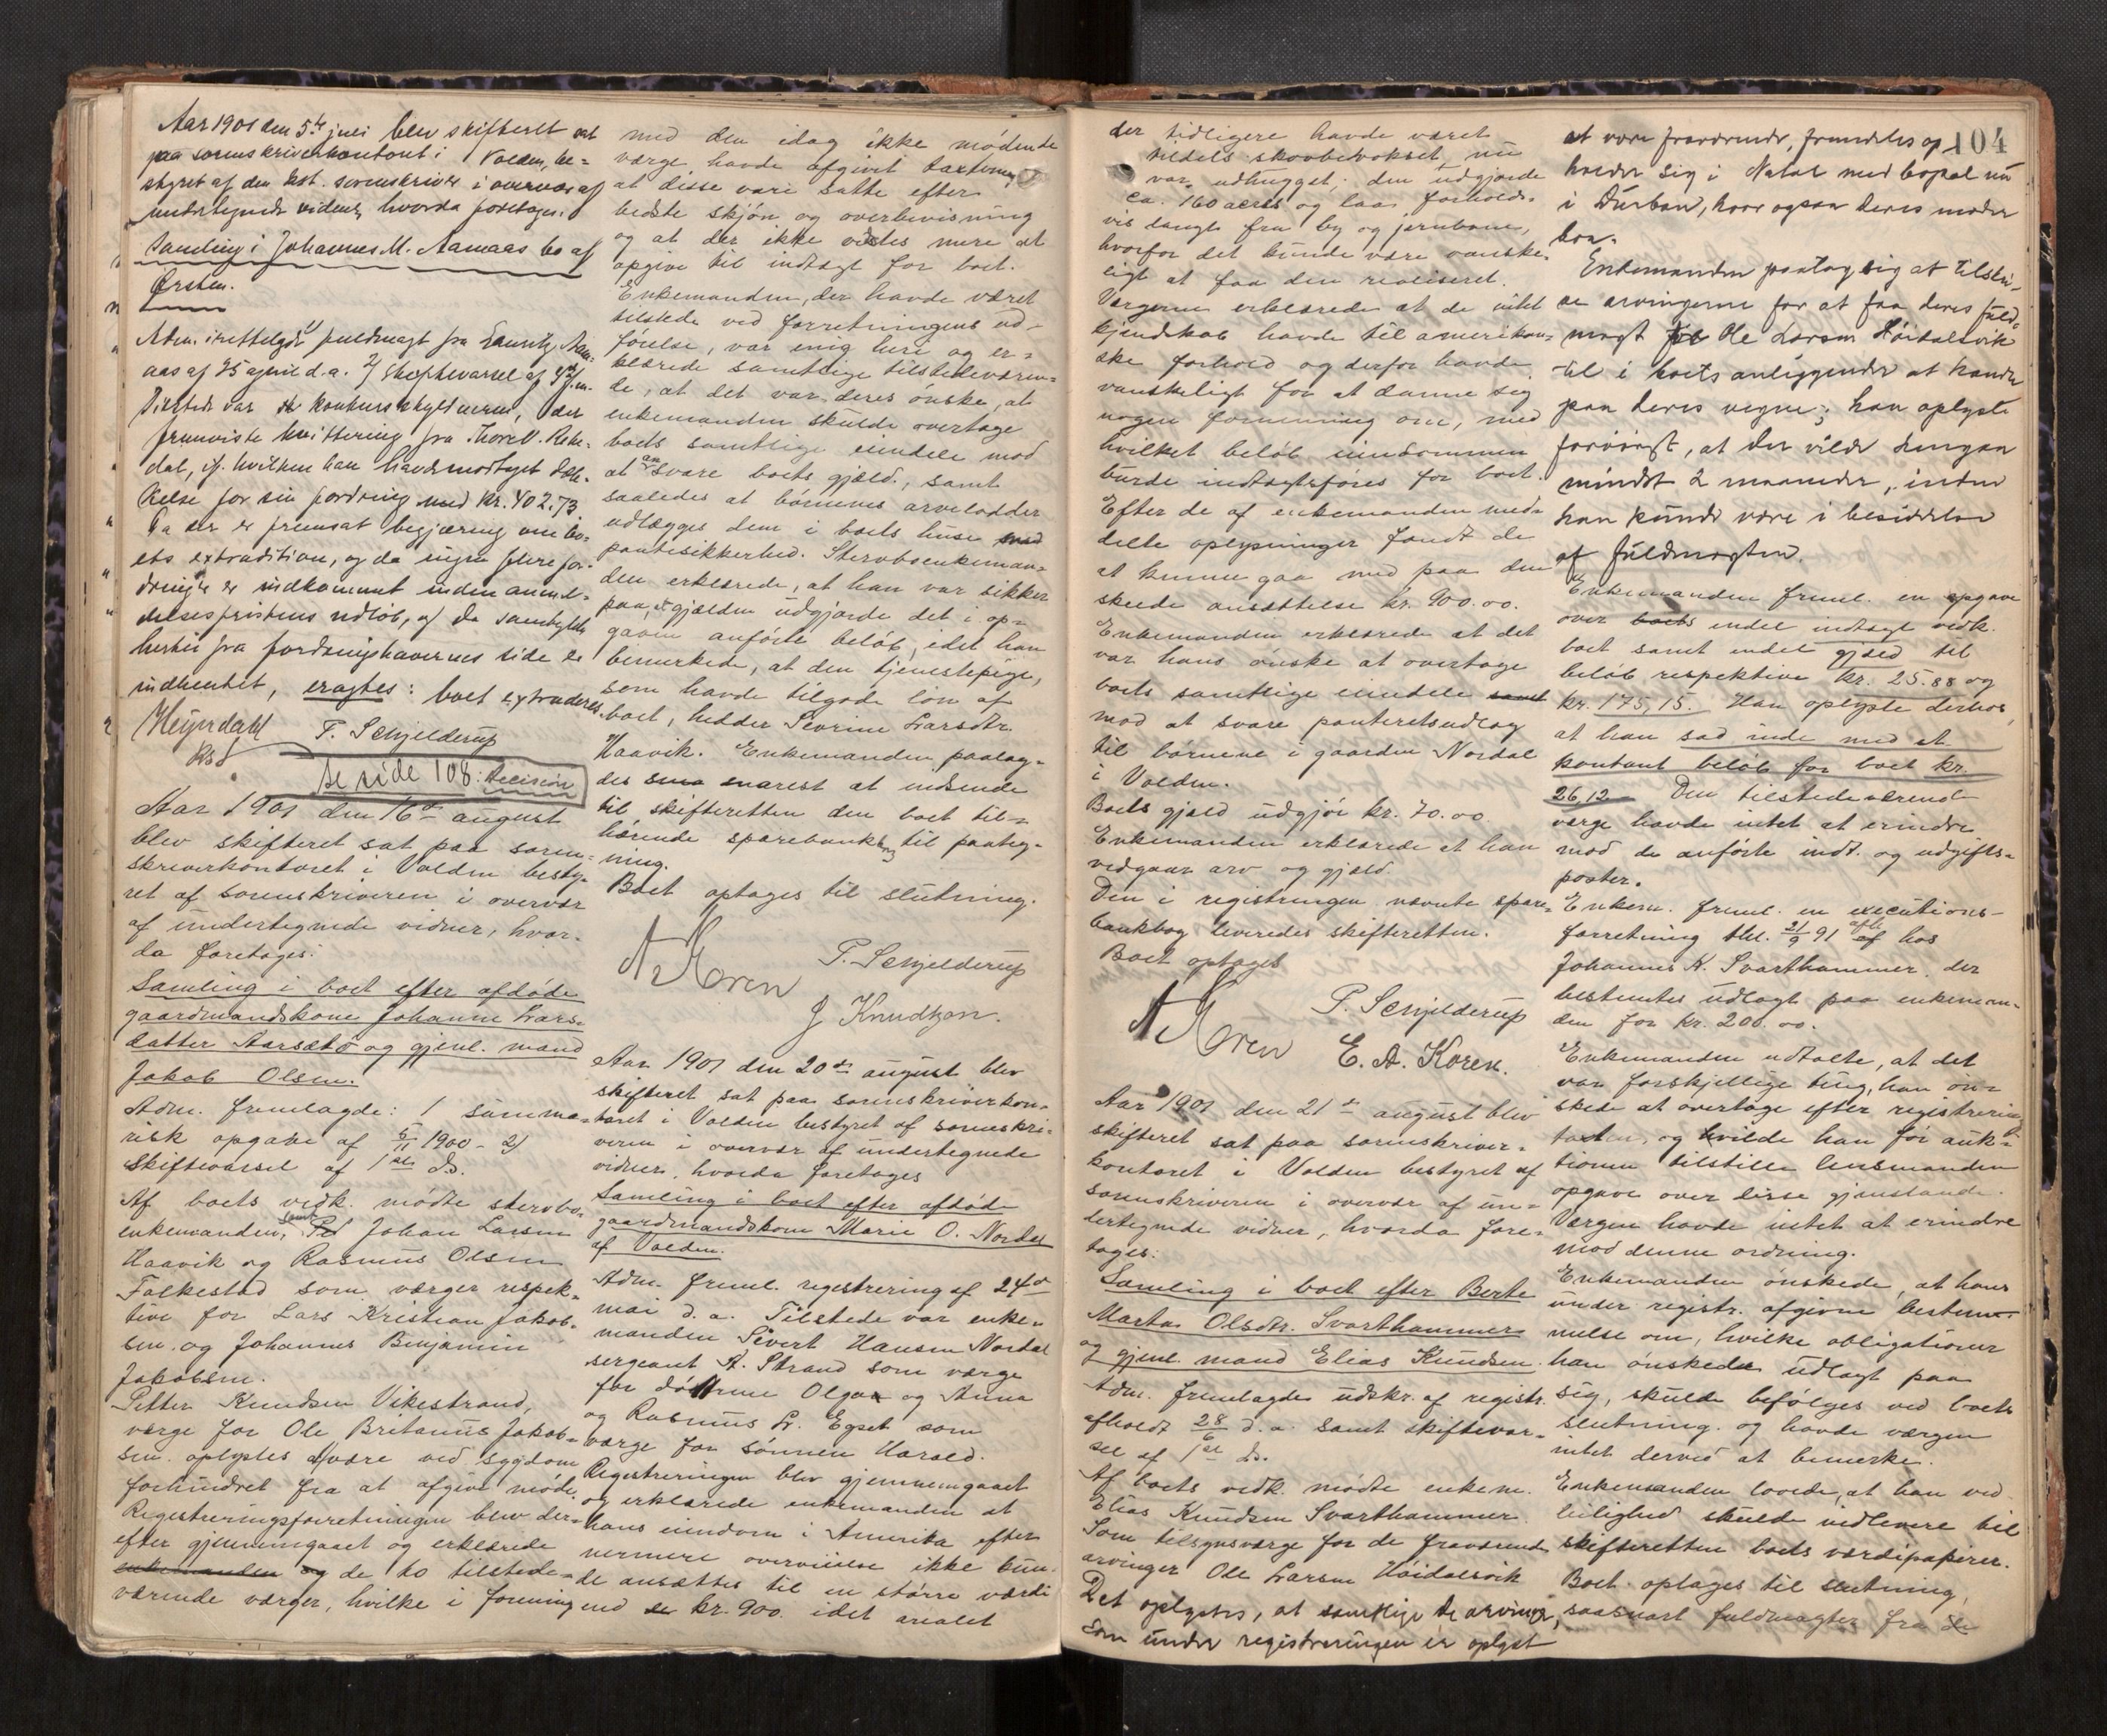 Aar 1901 den 5te juli blev skifteret sat
paa sorenskriverkontoret i Volden, be-
styret af den kst. sorenskriver i overvær af
undertegnede vidner, hvorda foretoges:
Samling i Johannes M. Aamaas bo af
Ørsten.
Adm. irettelagde 1) fuldmagt fra Lauritz Aam-
aas af 25 april d.a. 2) Skiftevarsel af
Tilstede var konkursskyldneren, der
fremviste kvittering fra Thore V. Rete-
dal, if. hvilken han havde modtaget dæk-
kelse for sin fordring med kr. 402.73.
Da der er fremsat begjæring om bo-
ets extradition, og da ingen flere for-
dringer er indkommet inden anmel-
delsesfristens udløb, og da samtykke
hertil fra fordringshavernes side er
indhentet, eragtes: boet extraderes.
Heyerdahl T. Schjelderup
kst.
se side 108: Decision
Aar 1901 den 16de august
blev skifteret sat paa soren-
skriverkontoret i Volden besty-
ret af sorenskriveren i overvær
af undertegnede vidner, hvor-
da foretoges:
Samling i boet efter afdøde
gaardmandskone Johanne Lars-
datter Aarsætø og gjenl. mand
Jakob Olsen.
Adm. fremlagde: 1 summa-
risk opgave af 5/11 1900 - 2)
Skiftevarsel af 1ste ds.
Af boets vedk. mødte stervbo-
enkemanden, samt Johan Larsen
Haavik og Rasmus Olsen
Folkestad som værger respek-
tive for Lars Kristian Jakob-
sen og Johannes Benjamin
Jakobsen.
Petter Knudsen Vikestrand,
værge for Ole Britanus Jakob-
sen oplystes at være ved sygdom
forhindret fra at afgive møde.
Registreringsforretningen blev der-
efter gjennemgaaet og erklærede
enkemanden og de to tilstede-
værende værger, hvilke i forening
med den idag ikke mødende
værge havde afgivet taxterne
at disse vare satte efter
bedste skjøn og overbevisning
og at der ikke vidstes mere at
opgive til indtægt for boet.
Enkemanden, der havde været
tilstede ved forretningens ud-
førelse, var enig heri og er-
klærede samtlige tilstedeværen-
de, at det var deres ønske, at
enkemanden skulde overtage
boets samtlige eiendele mod
at ansvare boets gjæld, samt
saaledes at børnenes arvelodder
udlægges dem i boets huse med
pantesikkerhed. Stervboenkeman-
den erklærede, at han var sikker
paa, at gjælden udgjorde det i op-
gaven anførte beløb, idet han
bemerkede, at den tjenestepige,
som havde tilgode løn af
boet, hedder Severine Larsdtr.
Haavik. Enkemanden paalag-
des sma snarest at indsende
til skifteretten den boet til-
hørende sparebankbog til paateg-
ning.
Boet optages til slutning.
A Koren P. Schjelderup
J Knudtzon.
Aar 1901 den 20de august blev
skifteret sat paa sorenskriverkon-
toret i Volden bestyret af sorenskri-
veren i overvær af undertegnede
vidner, hvorda foretoges
Samling i boet efter afdøde
gaardmandskone Marie O. Nordal
af Volden.
Adm. freml. registrering af 24de
mai d.a. Tilstede var enke-
manden Sivert Hansen Nordal
sergeant A. Strand som værge
for døttrene Olga og Anna
og Rasmus Lr. Egset som
værge for sønnen Harald.
Registreringen blev gjennemgaaet
og erklærede enkemanden at
hans eiendom i Amerika efter
nermere overveielse ikke kun-
de ansættes til en større værdi
end kr. 900. idet arealet
104
der tidligere havde været
tildels skovbevokset, nu
var udhugget; den udgjorde
ca. 160 acres og laa forholds-
vis langt fra by og jernbane,
hvorfor det kunde være vanske-
ligt at faa den realiseret.
Værgerne erklærede at de intet
kjendskab havde til amerikan-
ske forhold og derfor havde
vanskeligt for at danne sig
nogen formening om, med
hvilket beløb eiendommen
burde indtægtsføres for boet.
Efter de af enkemanden med-
delte oplysninger fandt de
at kunne gaa med paa den
skede ansættelse kr. 900.00.
Enkemanden erklærede at det
var hans ønske at overtage
boets samtlige eiendele samt
mod at svare panteretsudlæg
til børnene i gaarden Nordal
i Volden.
Boets gjæld udgjør kr. 70.00.
Enkemanden erklærede at han
vedgaar arv og gjæld.
Den i registreringen nævnte spare-
bankbog leveredes skifteretten.
Boet optages
A Koren P. Schjelderup
E. A. Koren.
Aar 1901 den 21de august blev
skifteret sat paa sorenskriver-
kontoret i Volden bestyret af
sorenskriveren i overvær af un-
dertegnede vidner, hvorda fore-
toges:
Samling i boet efter Berte
Martas Olsdtr. Svarthammer
og gjenl. mand Elias Knudsen.
Adm. fremlagde udskr. af registr.
afholdt 28/6 d.a. samt skiftevar-
sel af 1ste ds.
Af boets vedk. mødte enkem.
Elias Knudsen Svarthammer.
Som tilsynsværge for de fraværende
arvinger Ole Larsen Høidalsvik
Det oplystes, at samtlige de arvinger,
som under registreringen er oplyst
at være fraværende, fremdeles op-
holder sig i Natal med bopæl nu
i Durban, hvor ogsaa deres moder
bor.
Enkemanden paatog sig at tilskri-
ve arvingerne for at faa deres fuld-
magt for Ole Larsen Høidalsvik
til i boets anliggender at handle
paa deres vegne; han oplyste
forøvrigt, at der vilde hengaa
mindst 2 maaneder, inden
han kunde være i besiddelse
af fuldmagten.
Enkemanden freml. en opgave
over boets endel indtægt vedk.
boet samt endel gjæld til
beløb respektive kr. 25.88 og
kr. 175,15. Han oplyste derhos,
at han sad inde med et
kontant beløb for boet kr.
26,12. Den tilstedeværende
værge havde intet at erindre
mod de anførte indt. og udgifts-
poster.
Enkem. freml. en executions-
forretning thl. 21/9 91 afh. hos
Johannes K. Svarthammer, der
bestemtes udlagt paa enkeman-
den for kr. 200.00.
Enkemanden udtalte, at det
var forskjellige ting, han øn-
skede at overtage efter registrerings
taxten, og vilde han før auk-
tionen tilstille lensmanden
opgave over disse gjenstande.
Værgen havde intet at erindre
mod denne ordning.
Enkemanden ønskede, at hans
under registr. afgivne bestem-
melse om, hvilke obligationer
han ønskede udlagt paa
sig, skulde befølges ved boets
slutning. og havde værgen
intet derved at bemerke.
Enkemanden lovede, at han ved
leilighed skulde indlevere til
skifteretten boets værdipapirer.
Boet optages til slutning,
saasnart fuldmagter fra de